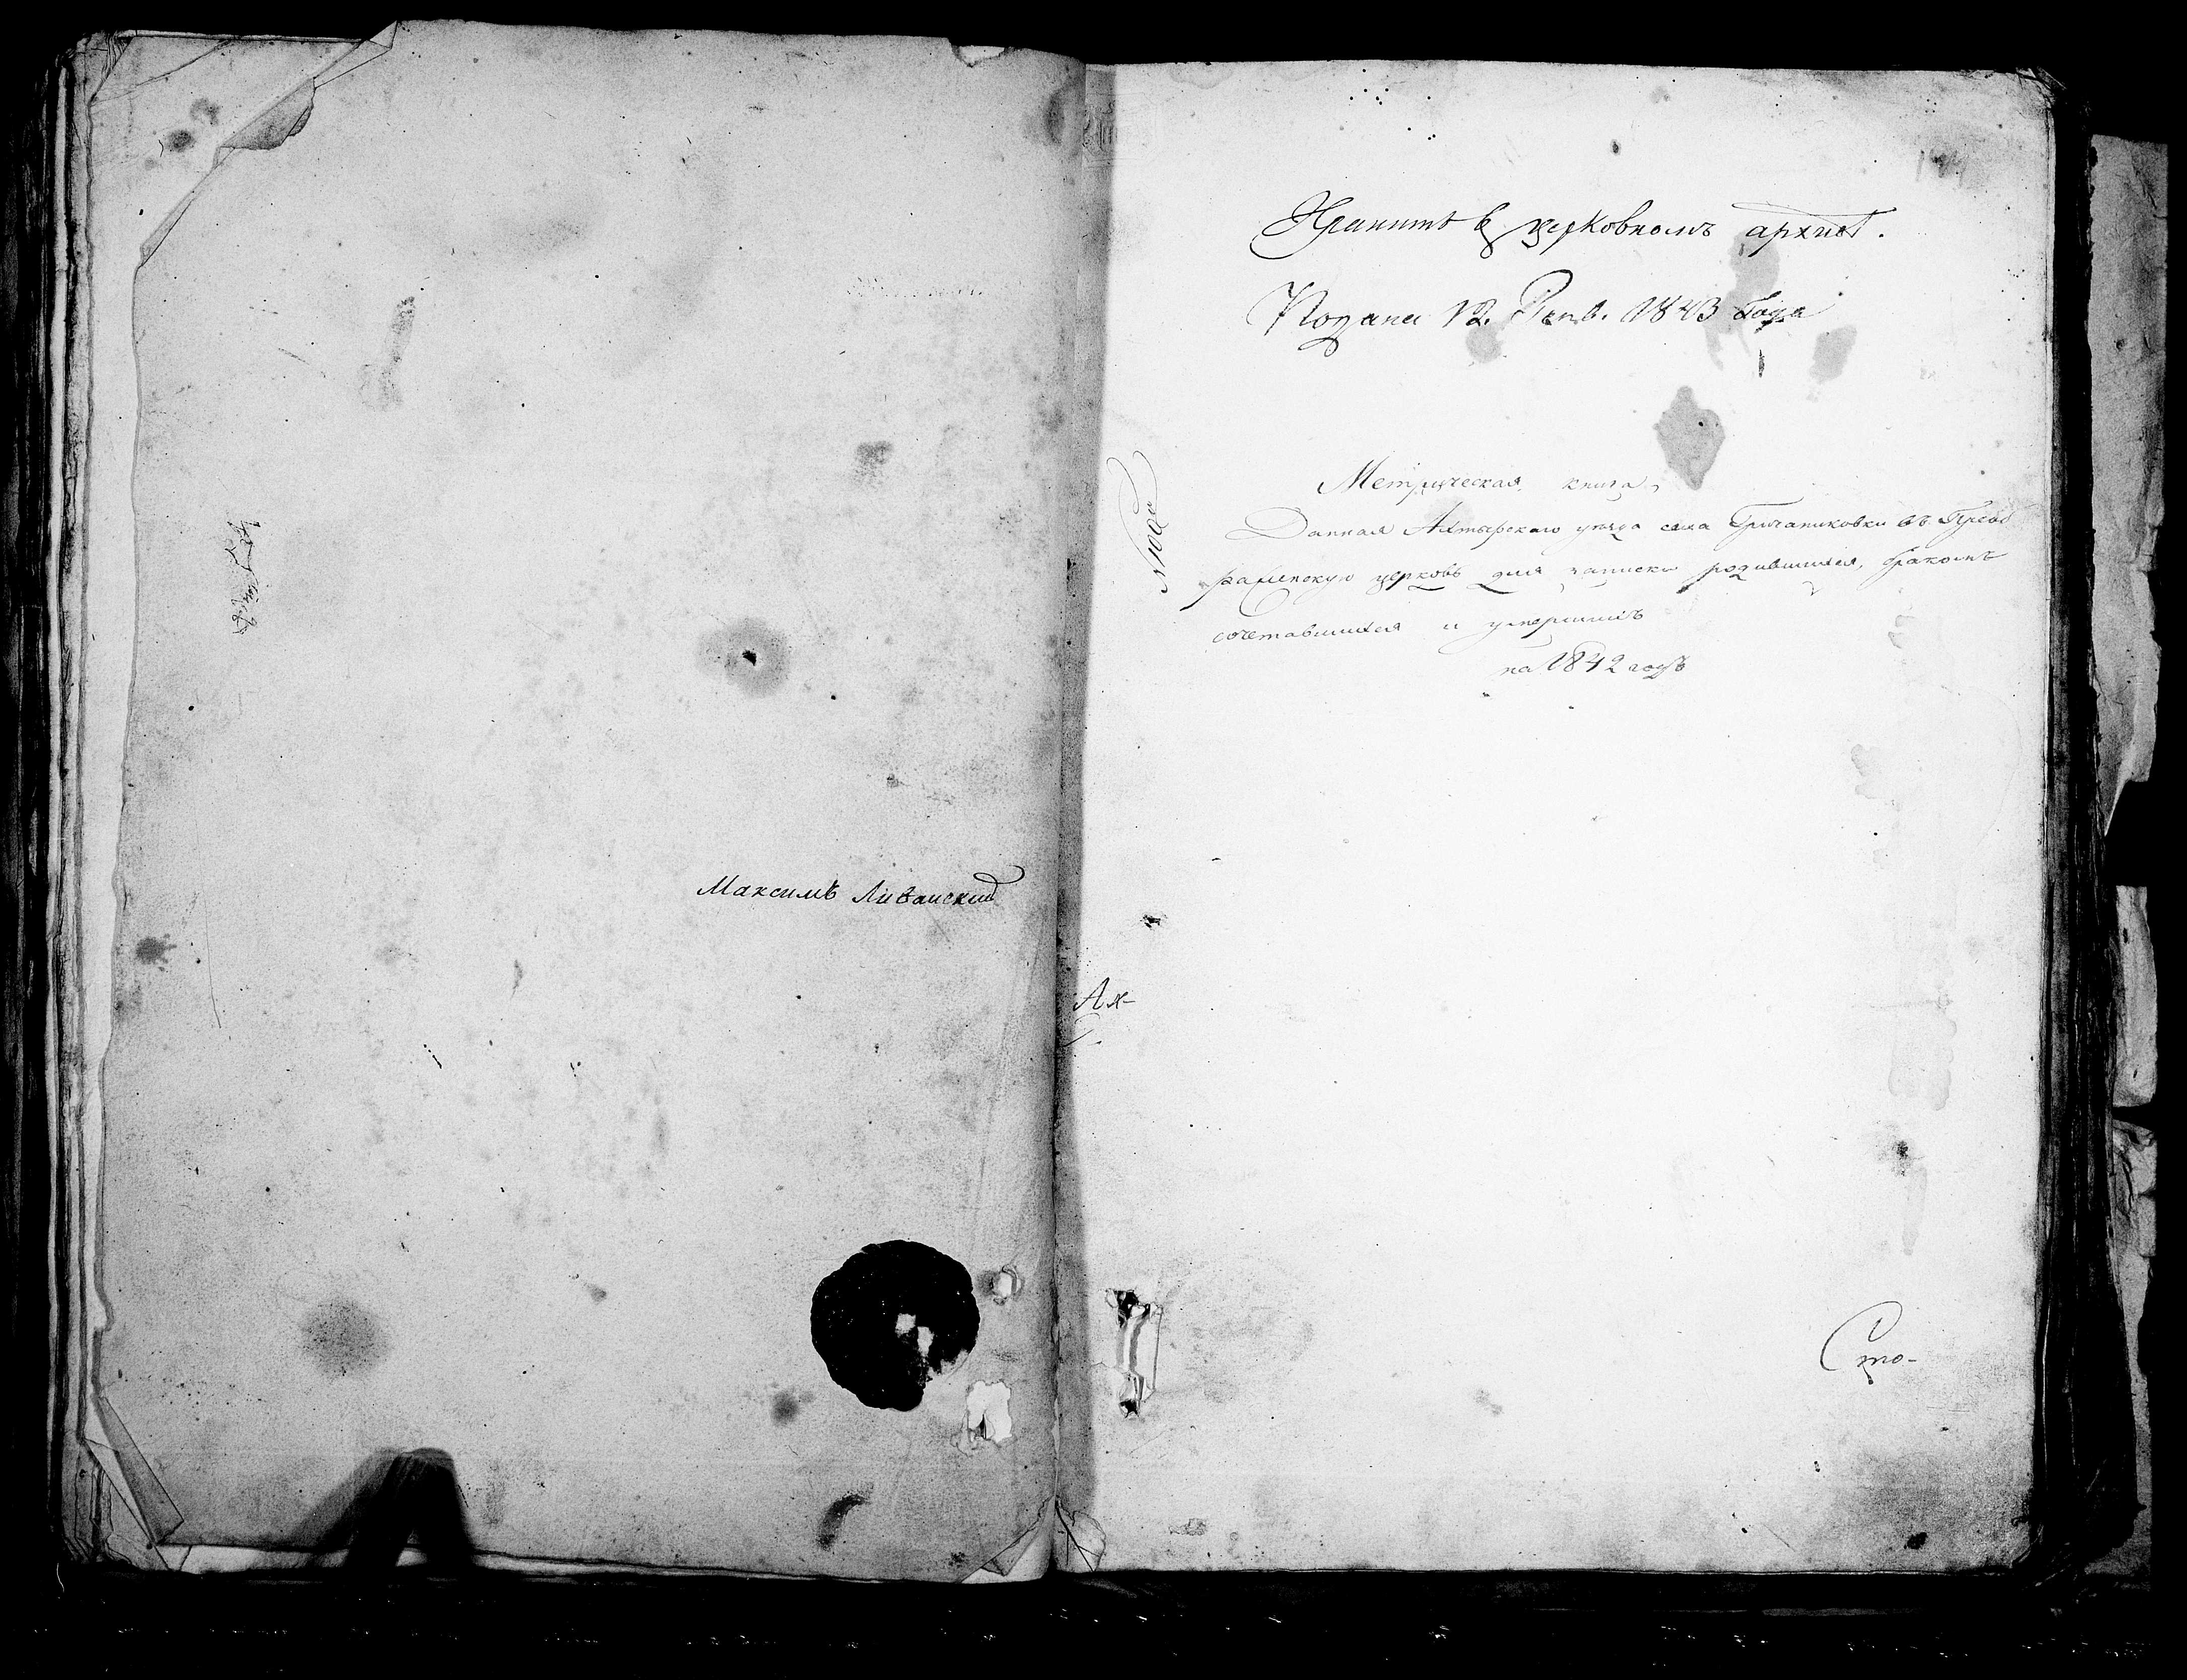 Максимъ Ливанский
Хранить в церковномъ архивѣ.
Подана 12. Генв. 1843 года
Метрическая книга,
Данная Ахтырскаго уѣзда села Гричаниковки въ Преоб
раженскую церковь для записки родившихся, бракомъ
сочетавшихся и умершихъ
на 1842 годъ
Ах-
Сто-